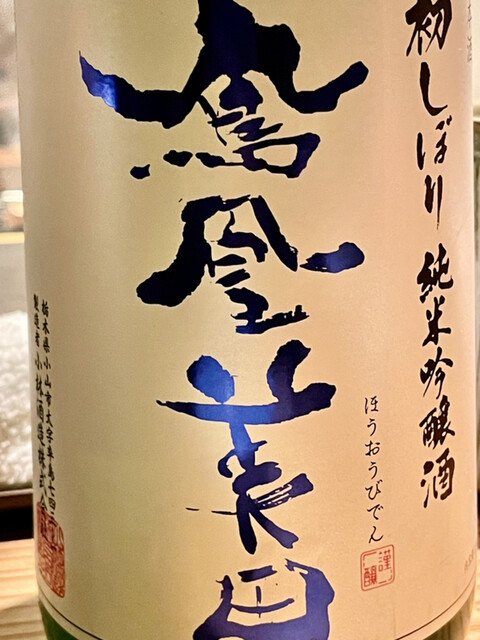 初しぼり 純米吟醸酒
鳳凰美田
ほうおうびでん
謹醸
栃木県小山市大字卒島七四
製造者 小林酒造株式会